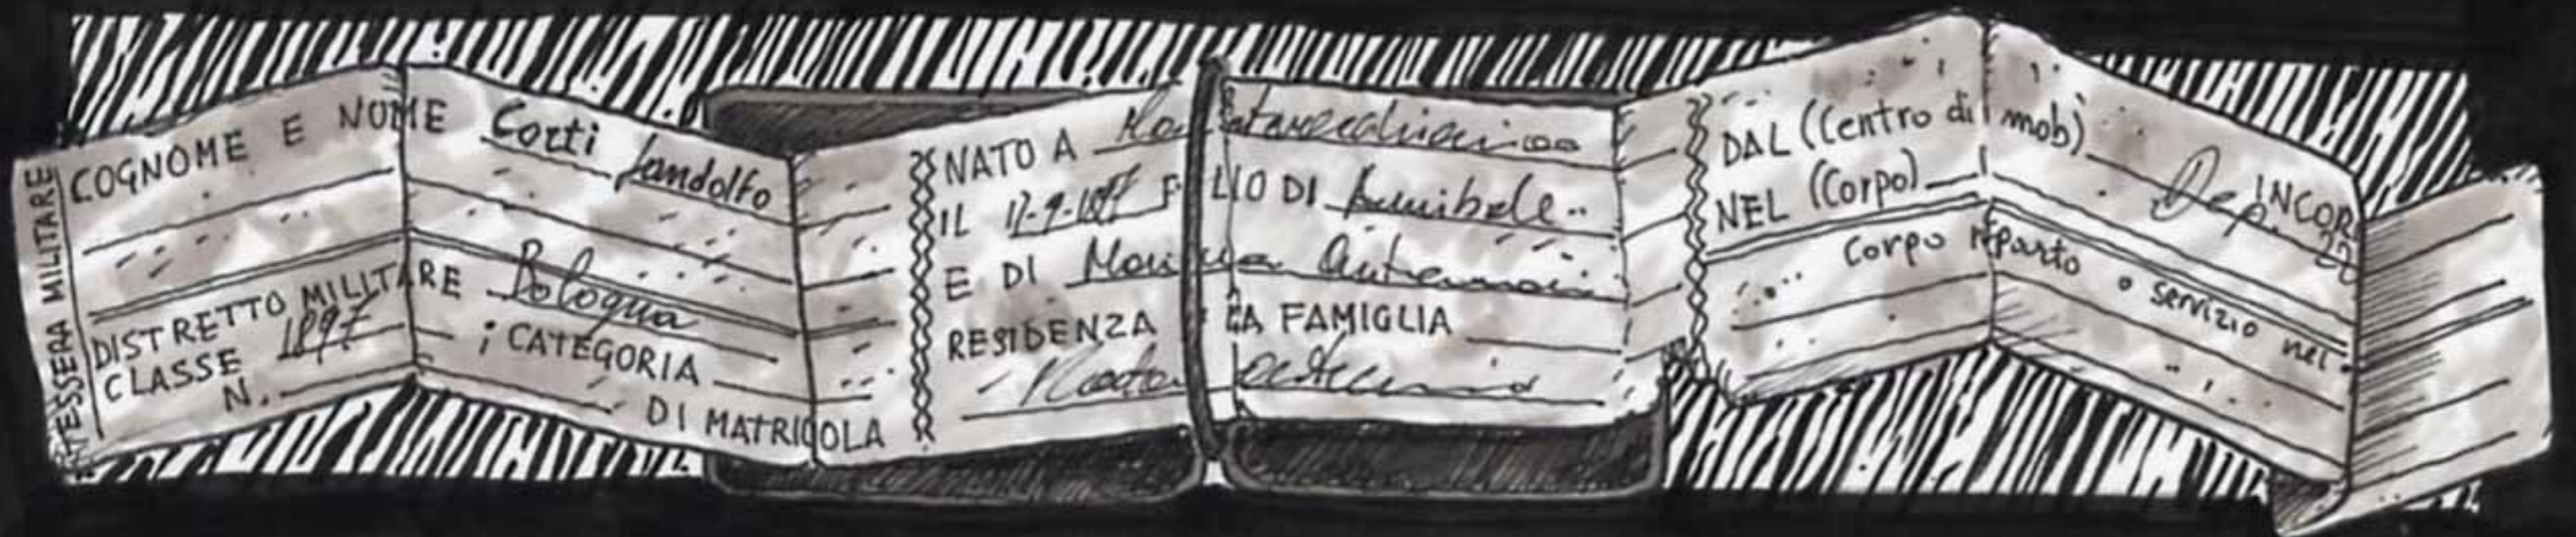 TESSERA MILITARE
COGNOME E NOME Corti Landolfo
DISTRETTO MILITARE Bologna
CLASSE 1897 CATEGORIA
N. DI MATRICOLA
NATO A
IL 17-9-1897 FI LIO DI Annibale..
E DI
RESIDENZA LA FAMIGLIA
DAL (Centro di mob)
NEL (Corpo)
INCOR
Dep. 22
Corpo reparto o servizio nel